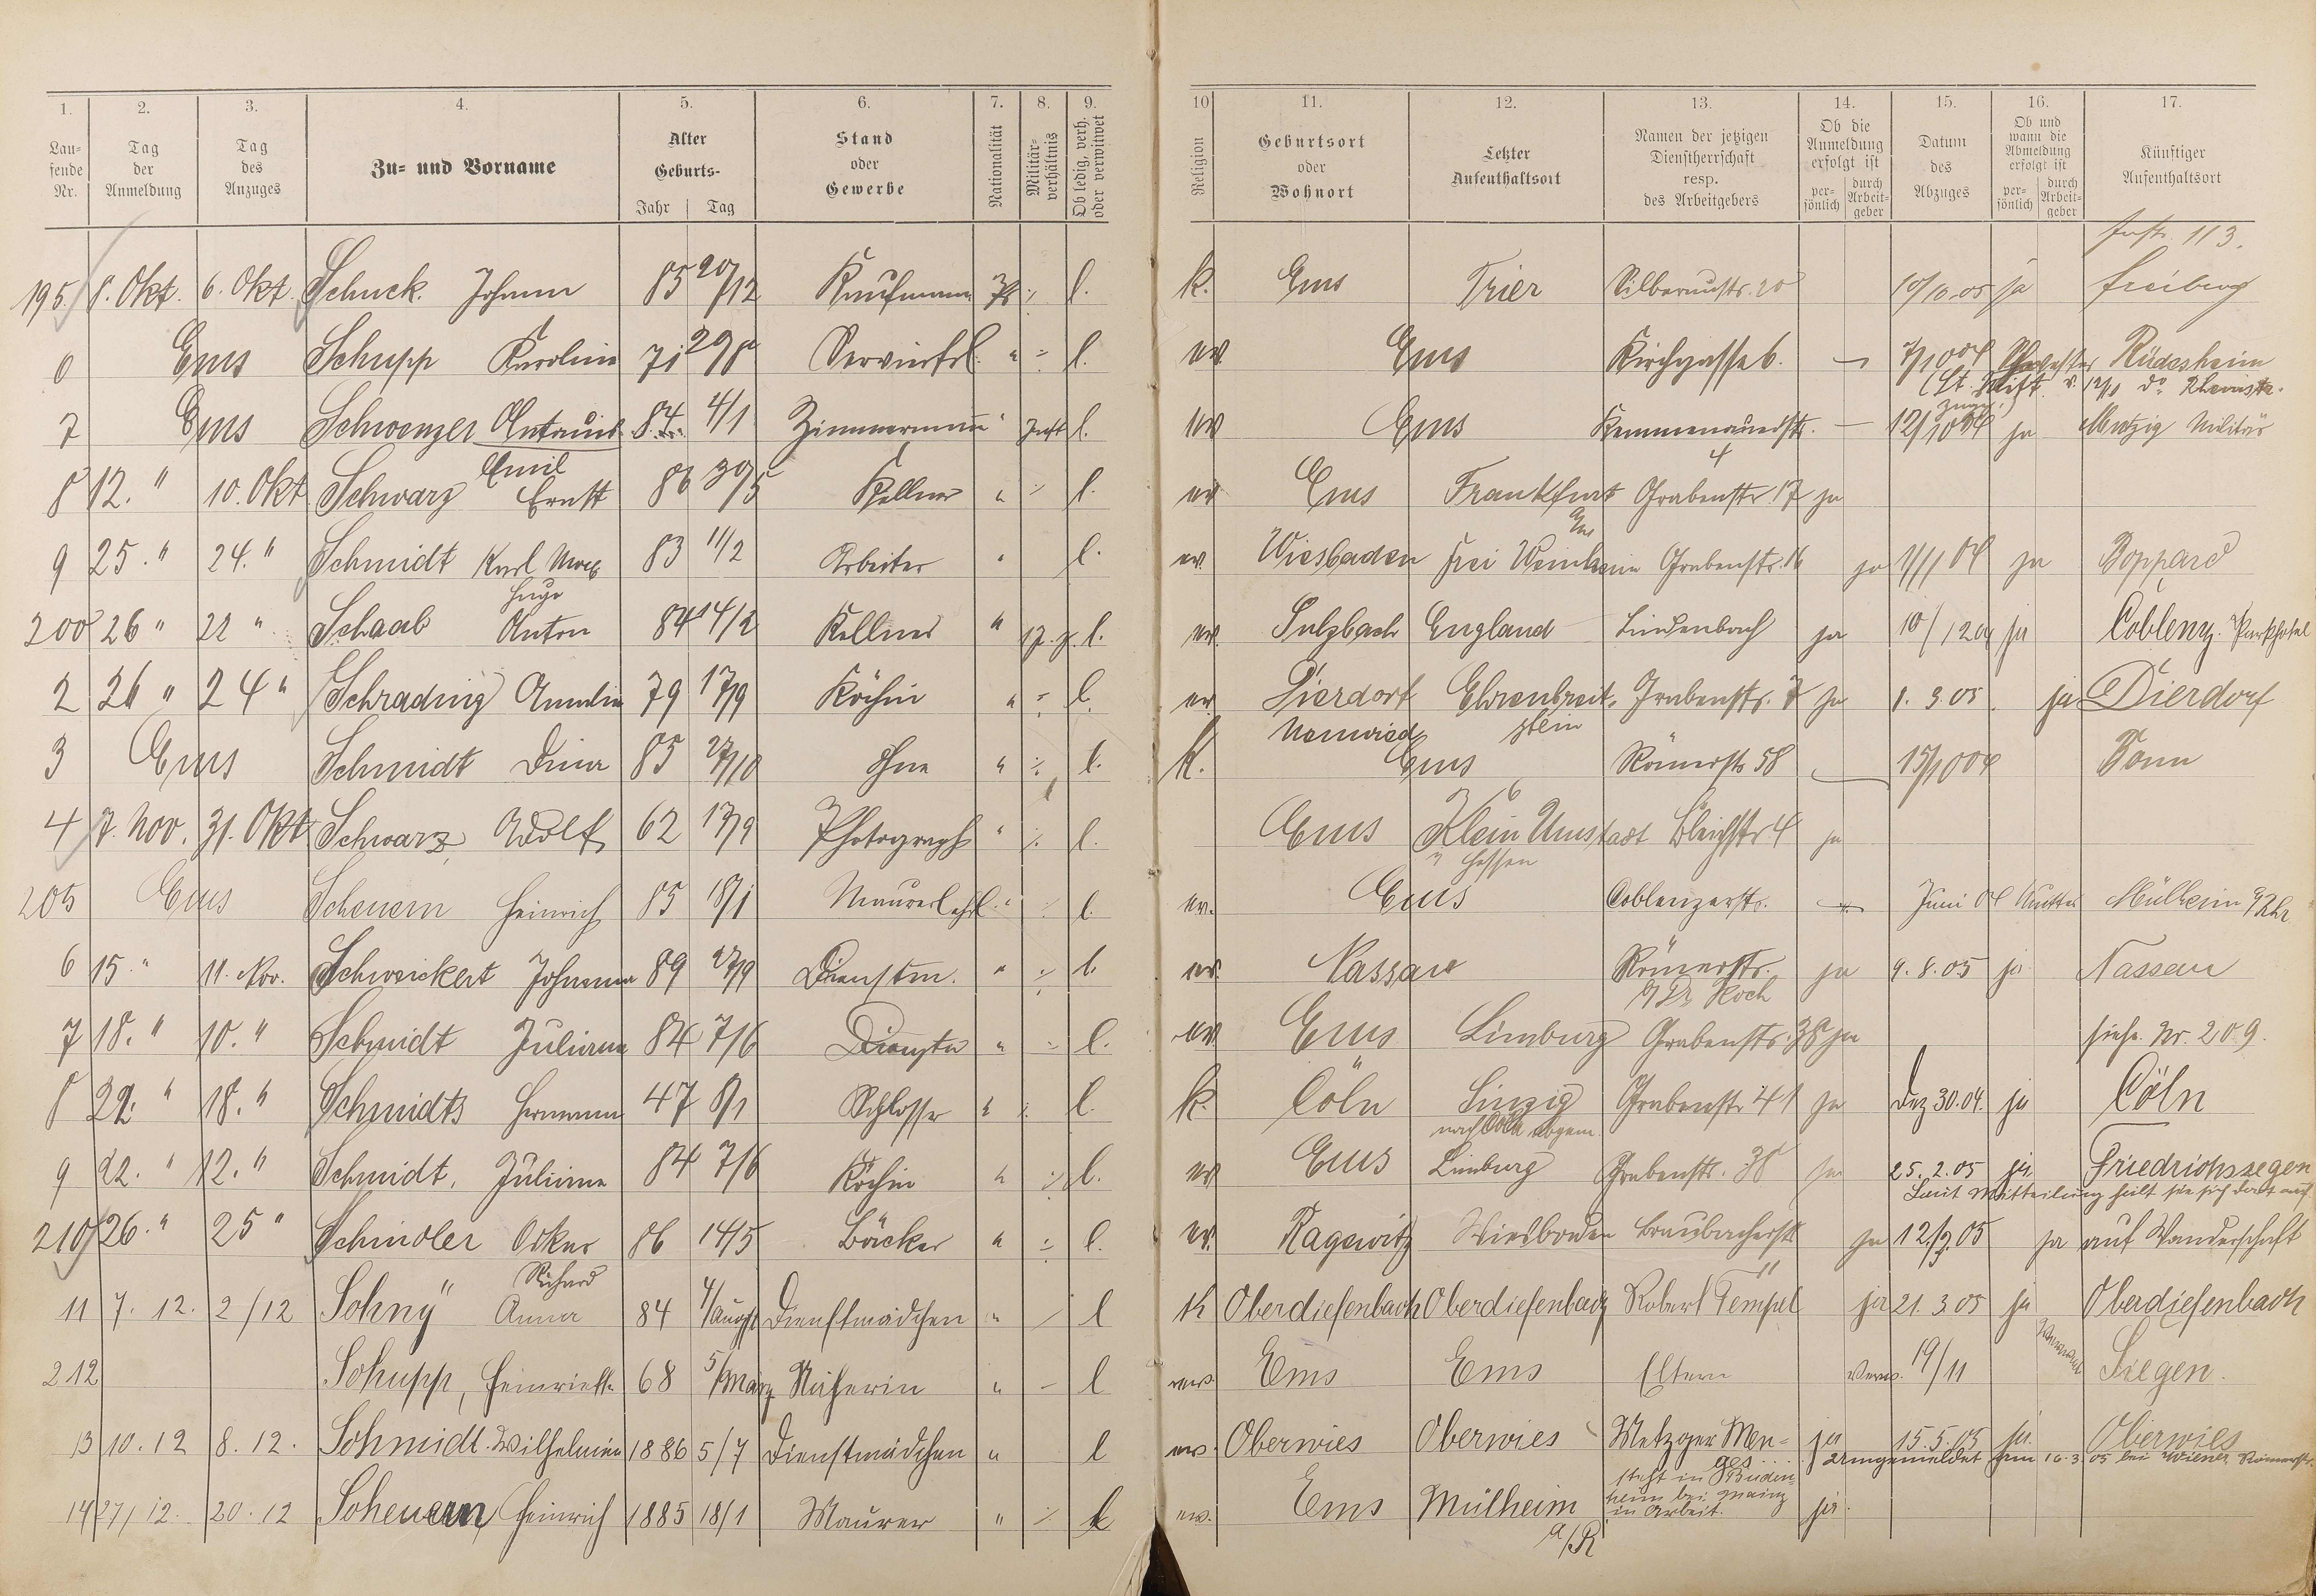 1. 2. 3. 4. 5. 6. 7. 8. 9. 10 11. 12. 13. 14. 15. 16. 17.
Laufende Nr. Tag der Anmeldung Tag des Anzuges Zu- und Vorname Alter Geburts- Jahr Tag Stand oder Gewerbe Nationalität Militärverhältnis Ob ledig, verh. oder verwitwet Religion Geburtsort oder Wohnort Letzter Aufenthaltsort Namen der jetzigen Dienstherrschaft resp. des Arbeitgebers Ob die Anmeldung erfolgt ist persönlich durch Arbeitgeber Datum des Abzuges Ob und wann die Abmeldung erfolgt ist persönlich durch Arbeitgeber Künftiger Aufenthaltsort
113.
195. 8. Okt. 6. Okt. Schuck Johann 85 20/12 Kaufmann Pr ./. l. k. Ems Trier Silberaustr. 20 10/10.05 ja Freiberg
6 Ems Schupp Karoline 71 29/8 Servierfrl. " ./. l. ev. Ems Kirchgasse 6. — 7/10 04 Rüdesheim
7 Ems Schwenzer 84 4/1 Zimmermann " l. ev Ems Kemmenauerstr. 4 — 12/10 04 ja Militär
8 12. " 10. Okt Schwarz Emil Ernst 86 30/5 Kellner " ./. l. ev Ems Frankfurt Grabenstr. 17 ja
9 25. " 24. " Schmidt Karl Hugo 83 11/2 Arbeiter " l. ev. Wiesbaden Frei Weinheim Grabenstr. 16 ja 1/11 04 ja Boppard
200 26 " 22 " Schaab Anton 84 14/2 Kellner " l. ev. Sulzbach England Lindenbach ja 10/12 04 ja Coblenz. Parkhotel
2 26 " 24 " Schrading 79 17/9 Köchin " ./. l. ev. Dierdorf Neuwied Ehrenbreitstein Grabenstr. 7 ja 1. 3. 05. ja Dierdorf
3 Ems Schmidt Dina 85 27/10 ohne " ./. l. k. Ems Römerstr 58 15/10 04 Bonn
4 7. Nov. 31. Okt Schwarz Adolf 62 17/9 Photograph " ./. l. Ems Klein Umstadt Hessen Bleichstr 4 ja
205 Ems Scheuern Heinrich 85 18/1 Maurerlehrl. " ./. l. ev. Ems Coblenzerstr. Juni 04 Mutter Mülheim a/Rhr
6 15. " 11. Nov. Schweickert Johanna 89 27/9 Dienstm. " ./. l. ev. Nassau Römerstr. Dr Koch ja 9. 8. 05 ja Nassau
7 18. " 10. " Schmidt Juliana 84 7/6 " ./. l. ev Ems Limburg Grabenstr. 38 ja siehe Nr. 209.
8 22. " 18. " Schmidts Hermann 47 8/1 Schlosser " ./. l. k. Cöln Sinzig nach Cöln abgem. Grabenstr 41 ja Dez 30.04. ja Cöln
9 22. " 12. " Schmidt, Juliana 84 7/6 Köchin " ./. l. ev Ems Limburg Grabenstr. 38 ja 25. 2. 05 ja Friedrichssegen
Laut Mitteilung hält sie sich dort auf.
210 26. " 25 " Schindler Oskar Richard 86 14/5 Bäcker " ./. l. ev. Ragewitz Wiesbaden Braubacherstr. 11 ja 12/2.05 ja auf Wanderschaft
11 7. 12. 2/12 Sohny Anna 84 4/August Dienstmädchen " / l k Oberdiefenbach Oberdiefenbach Robert Tempel ja 21. 3 05 ja Oberdiefenbach
212 Schupp, Heinriette 68 5/März Näherin " - l ev. Ems Ems Eltern 19/11 Siegen.
13 10. 12 8. 12. Schmidt. Wilhelmine 1886 5/7 Dienstmädchen " l ev. Oberwies Oberwies Metzger Menges ja 15. 5. 05 ja Oberwies
umgemeldet am 16. 3. 05 bei Wiener Römerstr.
14 27/12. 20. 12 Scheuern Heinrich 1885 18/1 Maurer " ./. l ev. Ems Mülheim a/R steht in Budenheim bei Mainz in Arbeit. ja.